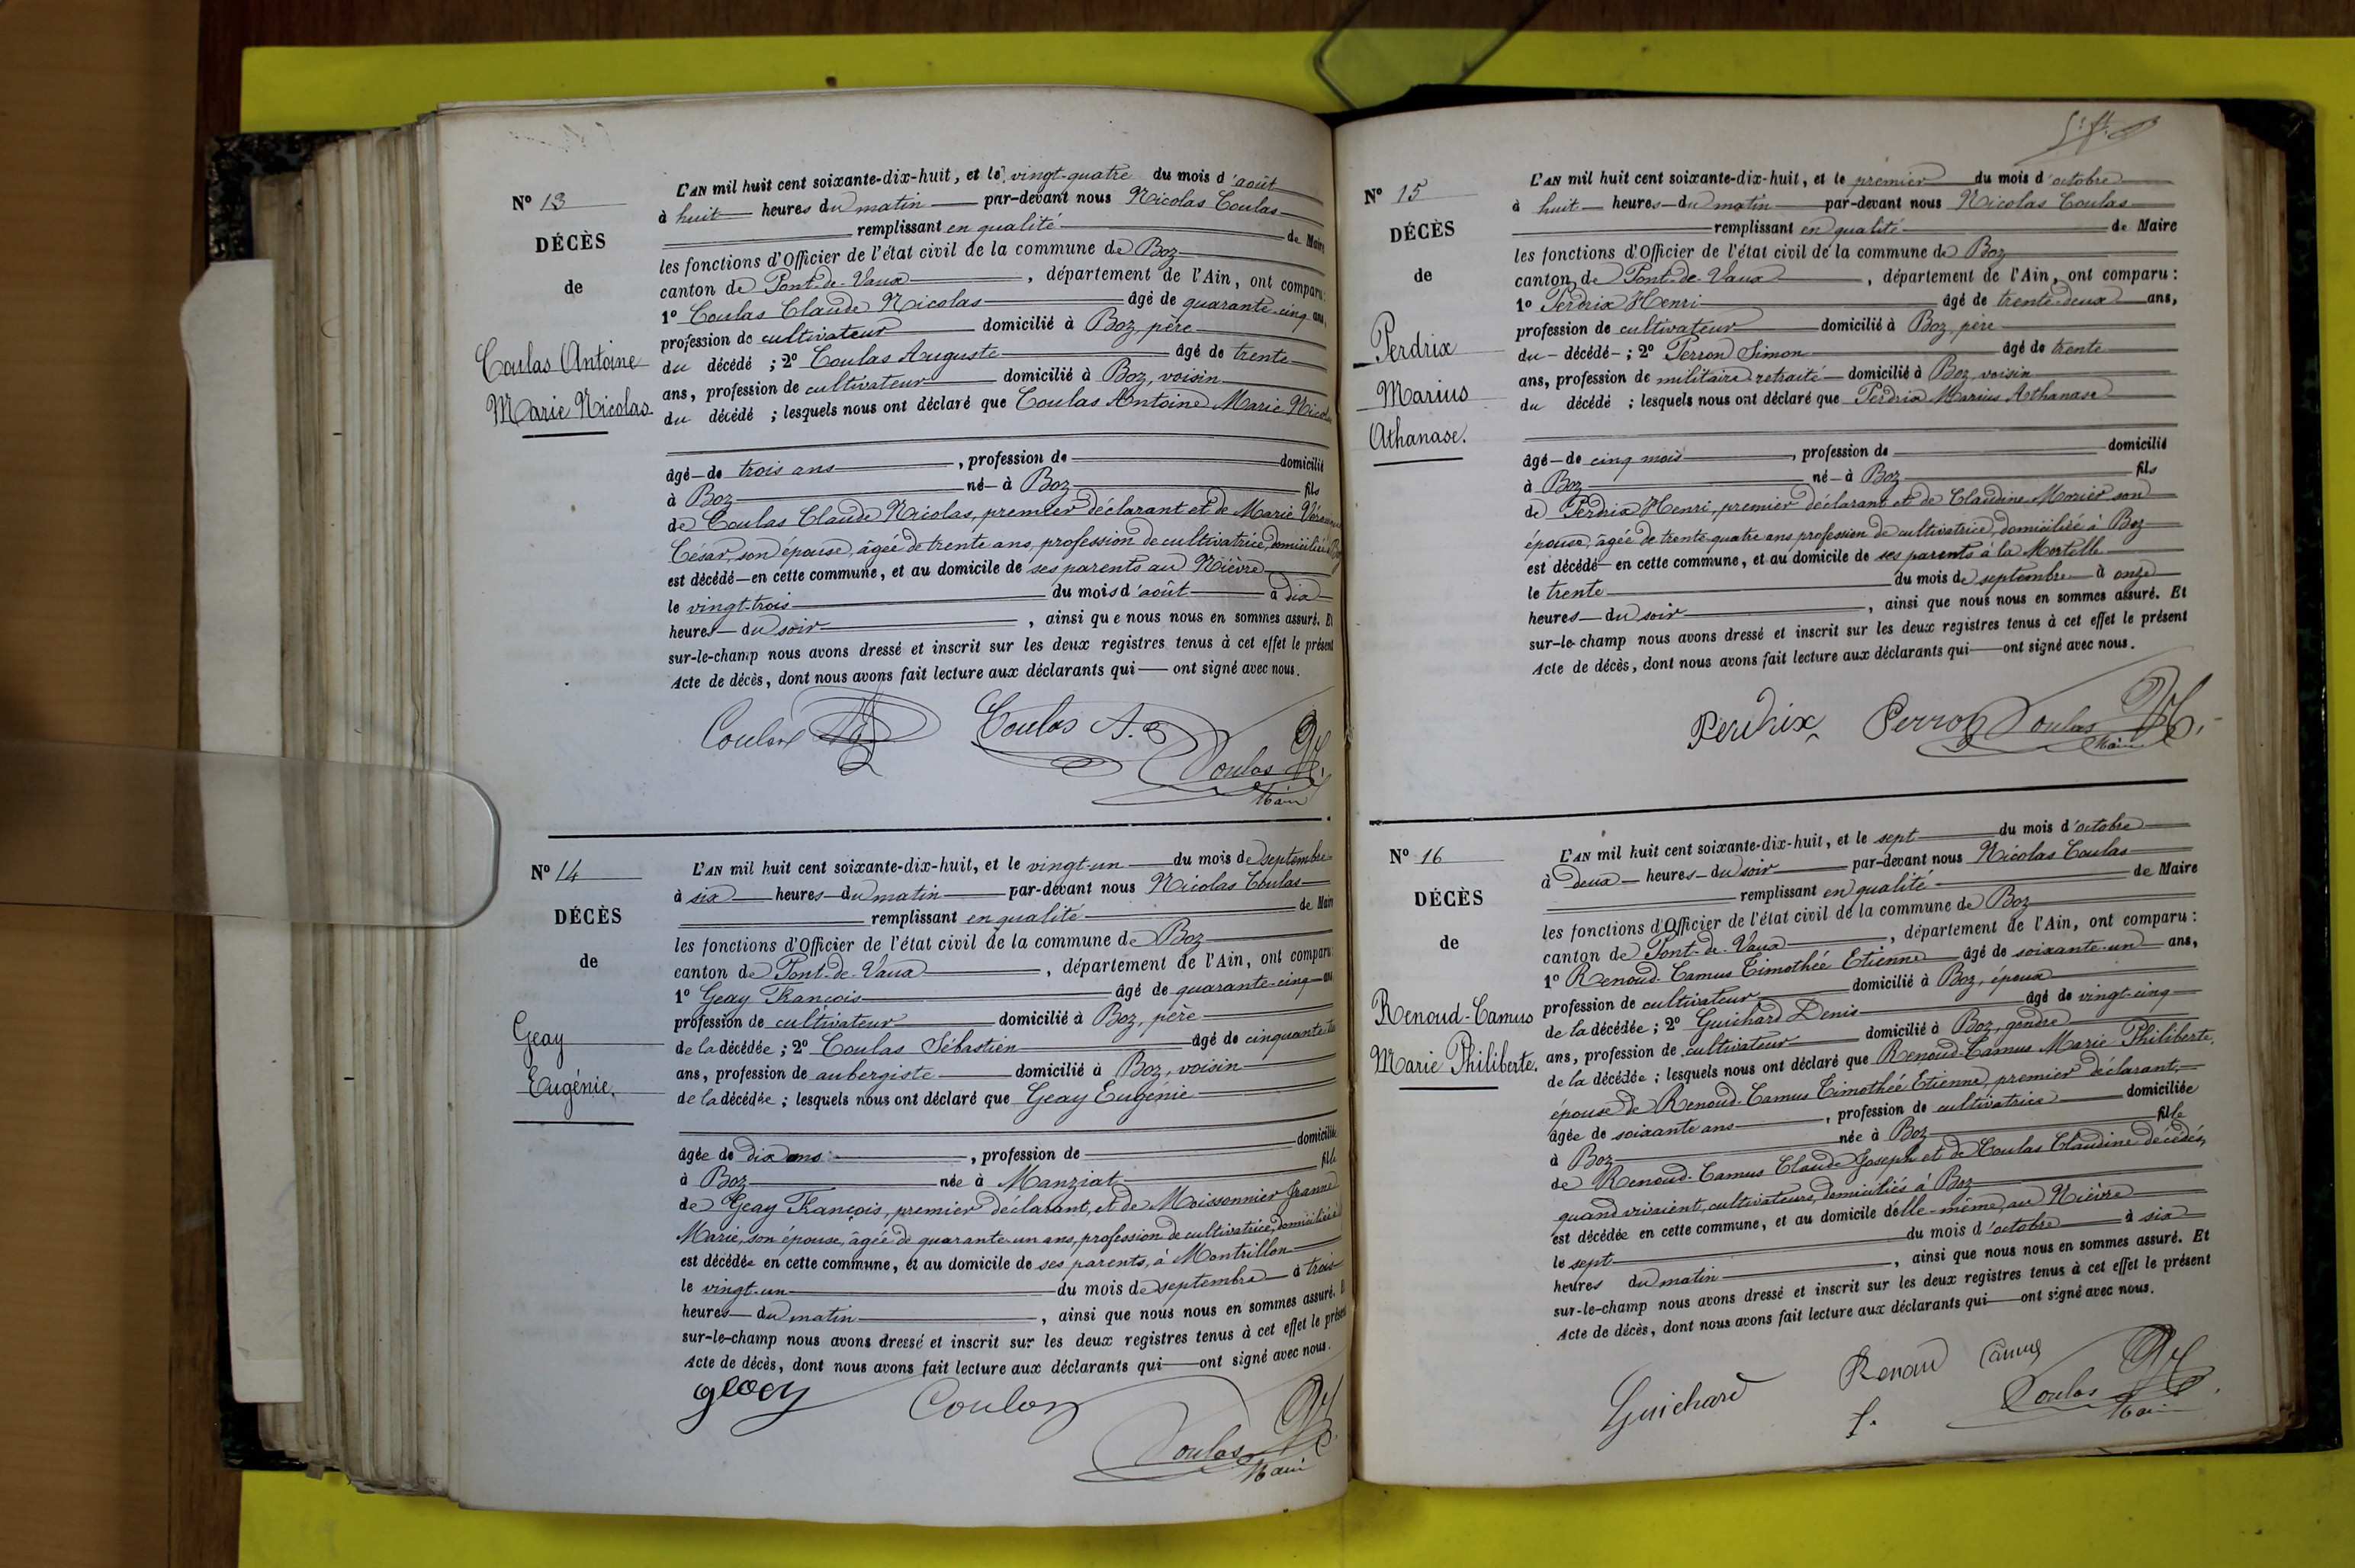 N° 13
DÉCÈS
de
Coulas Antoine
Marie Nicolas.
L'AN mil huit cent soixante-dix-huit, et le vingt-quatre du mois d'août
à huit heures du matin par-devant nous Nicolas Coulas
remplissant en qualité de Maire
les fonctions d'Officier de l'état civil de la commune de Boz
canton de Pont-de-Vaux, département de l'Ain, ont comparu:
1° Coulas Claude Nicolas âgé de quarante-cinq ans,
profession de cultivateur domicilié à Boz, père
du décédé ; 2° Coulas Auguste âgé de trente
ans, profession de cultivateur domicilié à Boz, voisin
du décédé ; lesquels nous ont déclaré que Coulas Antoine Marie Nicolas
âgé de trois ans, profession de domicilié
à Boz né à Boz fils
de Coulas Claude Nicolas, premier déclarant et de Marie
César, son épouse, âgée de trente ans, profession de cultivatrice, domiciliée à Boz
est décédé en cette commune, et au domicile de ses parents au Nièvre
le vingt-trois du mois d'août à dix
heures du soir, ainsi que nous nous en sommes assuré. Et
sur-le-champ nous avons dressé et inscrit sur les deux registres tenus à cet effet le présent
Acte de décès, dont nous avons fait lecture aux déclarants qui ont signé avec nous.
Coulas Coulas A. Coulas N.
Maire
N° 14
DÉCÈS
de
Geay
Eugénie.
L'AN mil huit cent soixante-dix-huit, et le vingt-un du mois de septembre
à six heures du matin par-devant nous Nicolas Coulas
remplissant en qualité de Maire
les fonctions d'Officier de l'état civil de la commune de Boz
canton de Pont-de-Vaux, département de l'Ain, ont comparu:
1° Geay François âgé de quarante-cinq ans
profession de cultivateur domicilié à Boz, père
de la décédée ; 2° Coulas Sébastien âgé de cinquante
ans, profession de aubergiste domicilié à Boz, voisin
de la décédée ; lesquels nous ont déclaré que Geay Eugénie
âgée de dix ans, profession de domiciliée
à Boz née à Manziat fille
de Geay François, premier déclarant, et de Moissonnier Jeanne
Marie, son épouse, âgée de quarante-un ans, profession de cultivatrice, domiciliée
est décédée en cette commune, et au domicile de ses parents, à Montrillon
le vingt-un du mois de septembre à trois
heures du matin, ainsi que nous nous en sommes assuré. Et
sur-le-champ nous avons dressé et inscrit sur les deux registres tenus à cet effet le présent
Acte de décès, dont nous avons fait lecture aux déclarants qui ont signé avec nous.
geay Coulas Coulas N.
Maire
N° 15
DÉCÈS
de
Perdrix
Marius
Athanase.
L'AN mil huit cent soixante-dix-huit, et le premier du mois d'octobre
à huit heures du matin par-devant nous Nicolas Coulas
remplissant en qualité de Maire
les fonctions d'Officier de l'état civil de la commune de Boz
canton de Pont-de-Vaux, département de l'Ain, ont comparu :
1° Perdrix Henri âgé de trente-deux ans,
profession de cultivateur domicilié à Boz, père
du décédé ; 2° Perron Simon âgé de trente
ans, profession de militaire retraité domicilié à Boz, voisin
du décédé ; lesquels nous ont déclaré que Perdrix Marius Athanase
âgé de cinq mois, profession de domicilié
à Boz né à Boz fils
de Perdrix Henri, premier déclarant et de Claudine Morier son
épouse, âgée de trente-quatre ans profession de cultivatrice, domiciliée à Boz
est décédé en cette commune, et au domicile de ses parents à la Mortelle
le trente du mois de septembre à onze
heures du soir, ainsi que nous nous en sommes assuré. Et
sur-le-champ nous avons dressé et inscrit sur les deux registres tenus à cet effet le présent
Acte de décès, dont nous avons fait lecture aux déclarants qui ont signé avec nous.
Perdrix Perron Coulas N.
Maire
N° 16
DÉCÈS
de
Renoud-Camus
Marie Philiberte.
L'AN mil huit cent soixante-dix-huit, et le sept du mois d'octobre
à deux heures du soir par-devant nous Nicolas Coulas
remplissant en qualité de Maire
les fonctions d'Officier de l'état civil de la commune de Boz
canton de Pont-de-Vaux, département de l'Ain, ont comparu :
1° Renoud-Camus Timothée Etienne âgé de soixante-un ans,
profession de cultivateur domicilié à Boz, époux
de la décédée ; 2° Guichard Denis âgé de vingt-cinq
ans, profession de cultivateur domicilié à Boz, gendre
de la décédée ; lesquels nous ont déclaré que Renoud-Camus Marie Philiberte,
épouse de Renoud-Camus Timothée Etienne, premier déclarant,
âgée de soixante ans, profession de cultivatrice domiciliée
à Boz née à Boz fille
de Renoud-Camus Claude Joseph et de Coulas Claudine décédés,
quand vivaient, cultivateurs, domiciliés à Boz
est décédée en cette commune, et au domicile d'elle-même, au Nièvre
le sept du mois d'octobre à six
heures du matin, ainsi que nous nous en sommes assuré. Et
sur-le-champ nous avons dressé et inscrit sur les deux registres tenus à cet effet le présent
Acte de décès, dont nous avons fait lecture aux déclarants qui ont signé avec nous.
Guichard Renoud Camus Coulas N.
Maire